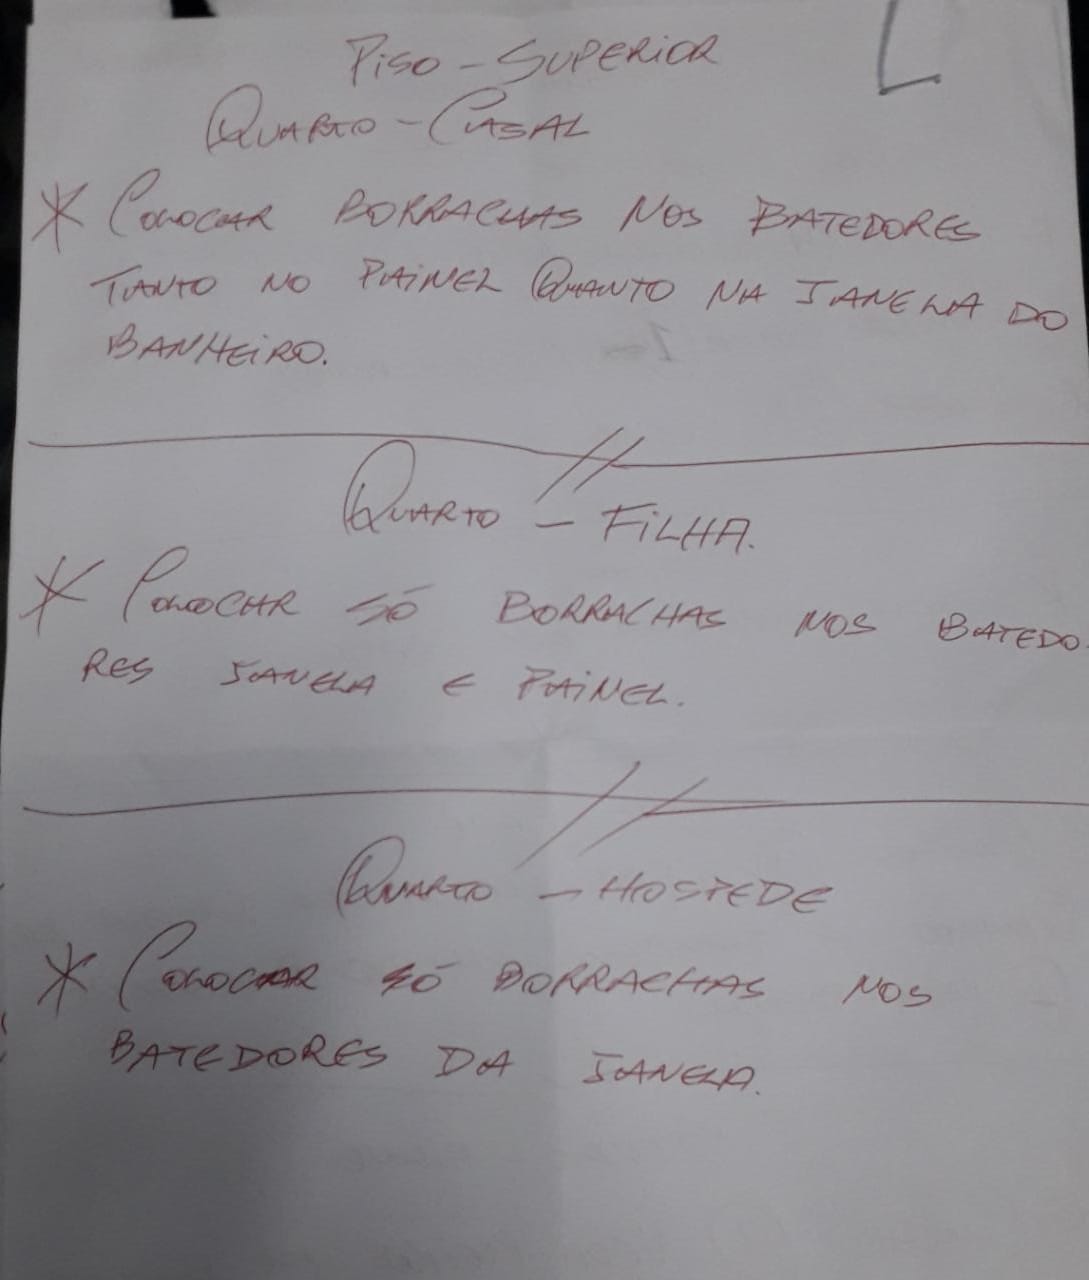 PISO - SUPERIOR
QUARTO - CASAL
* COLOCAR BORRACHAS NOS BATEDORES
TANTO NO PAINEL QUANTO NA JANELA DO
BANHEIRO.
QUARTO - FILHA.
* COLOCAR SÓ BORRACHAS NOS BATEDO
RES JANELA E PAINEL.
QUARTO - HOSPEDE
* COLOCAR SÓ BORRACHAS NOS
BATEDORES DA JANELA.